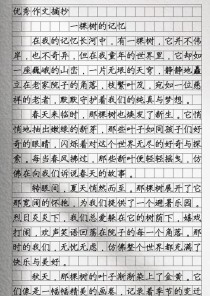 优秀作文摘抄
一棵树的记忆
在我的记忆长河中，有一棵树，它并不伟
岸，也不奇异，但在我童年的世界里，它却如
一座巍峨的山峦，一片无垠的天穹，静静地矗
立在老家院子的角落，枝繁叶茂，宛如一位慈
祥的老者，默默守护着我们的纯真与梦想。
春天来临时，那棵树也焕发了新生，它悄
悄地抽出嫩绿的新芽，那些叶子如同孩子们好
奇的眼睛，闪烁着对这个世界无尽的好奇与探
索。每当春风拂过，那些新叶便轻轻摇曳，仿
佛在向我们诉说着春天的故事。
转眼间，夏天悄然而至，那棵树展开了它
那宽阔的怀抱，为我们提供了一个避暑乐园。
烈日炎炎下，我们总爱躺在它的树荫下，嬉戏
打闹，欢声笑语回荡在院子的每一个角落。那
时的我们，无忧无虑，仿佛整个世界都充满了
快乐与美好。
秋天，那棵树的叶子渐渐染上了金黄，它
们像是一幅幅精美的画卷，记录着季节的变迁